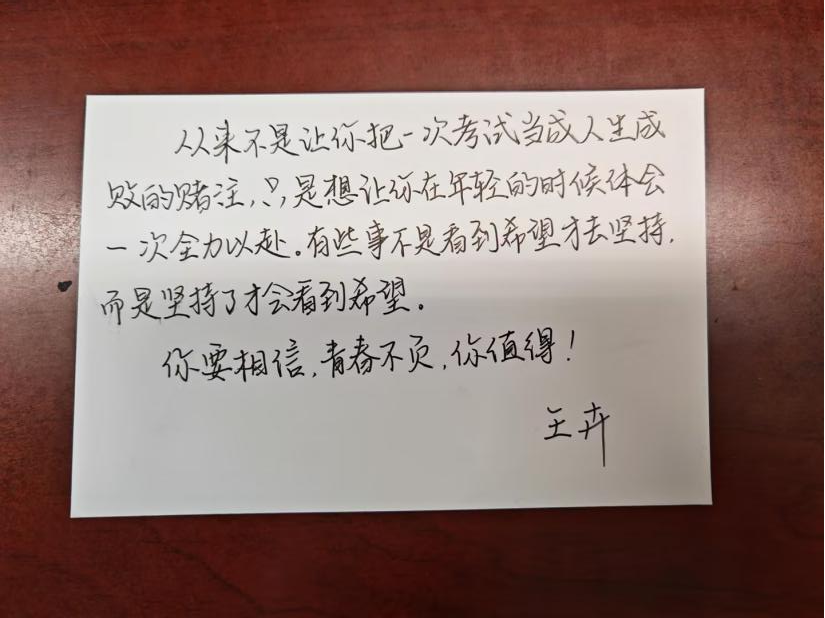 从来不是让你把一次考试当成人生成
败的赌注,只是想让你在年轻的时候体会
一次全力以赴。有些事不是看到希望才去坚持,
而是坚持了才会看到希望。
你要相信,青春不负,你值得!
王卉